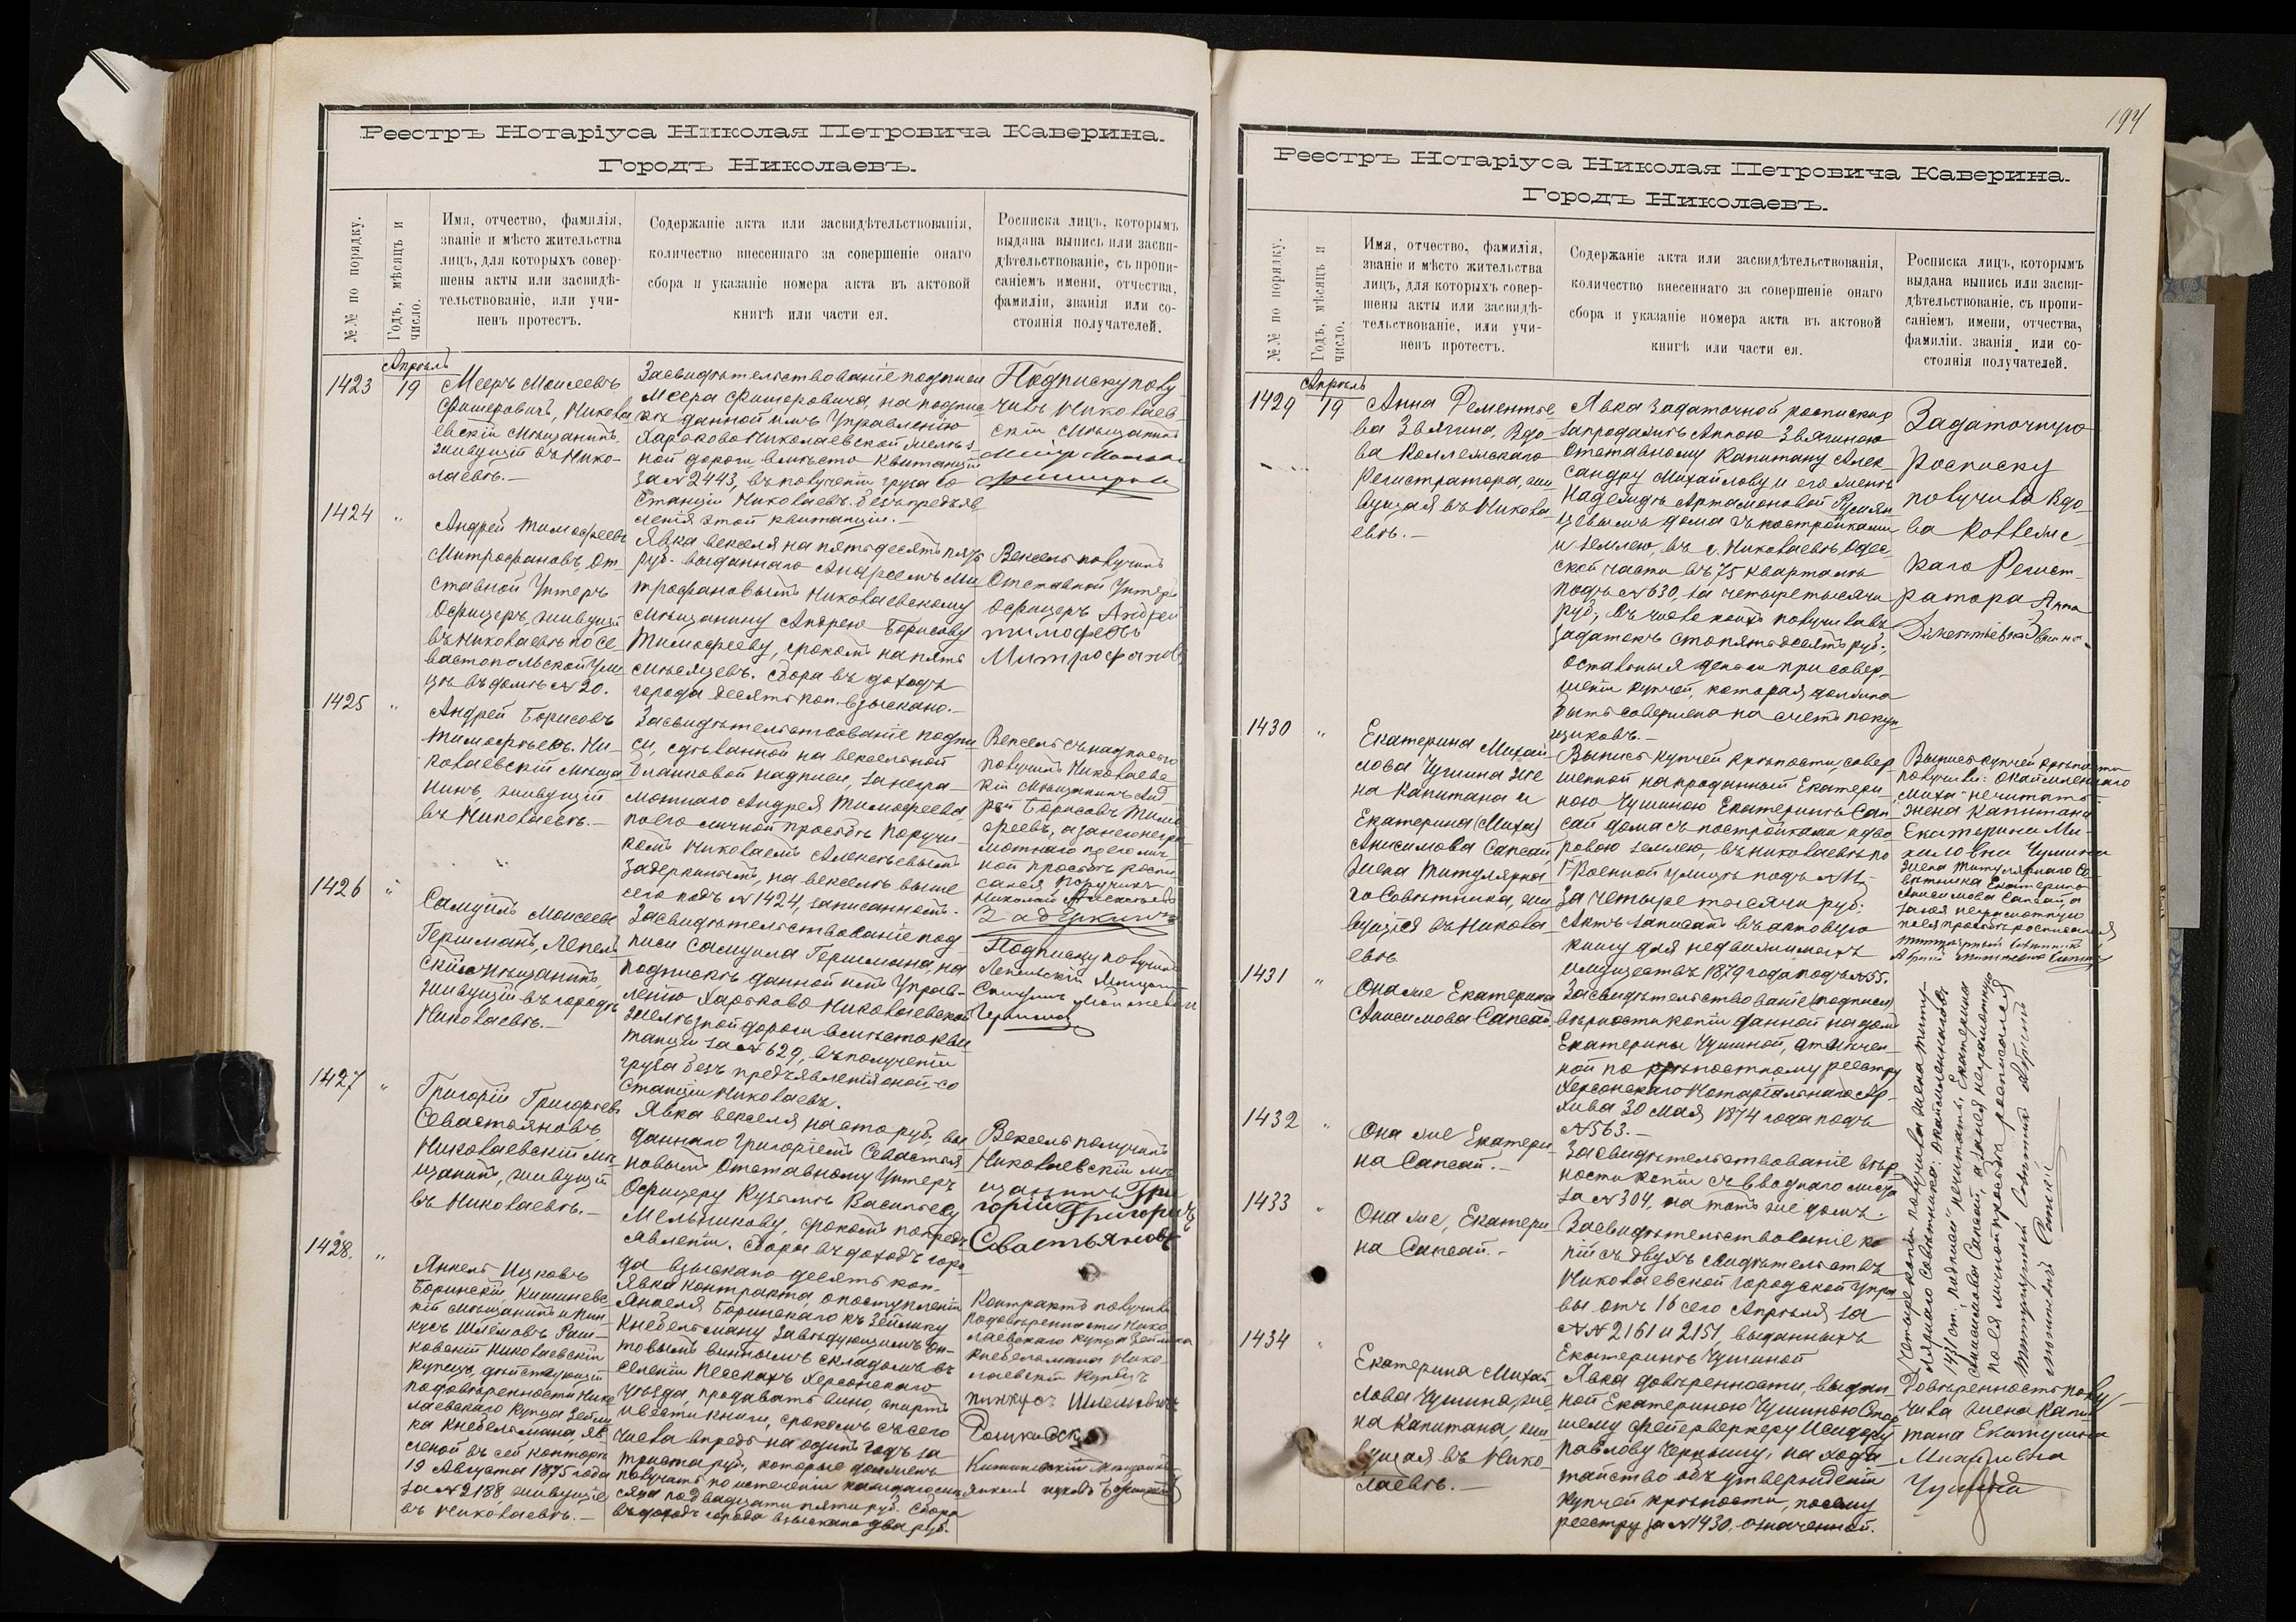 Реестръ Нотаріуса Николая Петровича Каверина.
Городъ Николаевъ.
№№ по порядку.
Годъ, мѣсяцъ и
число.
Имя, отчество, фамилія,
званіе и мѣсто жительства
лицъ, для которыхъ совер-
шены акты или засвидѣ-
тельствованіе, или учи-
ненъ протестъ.
Содержаніе акта или засвидѣтельствованія,
количество внесеннаго за совершеніе онаго
сбора и указаніе номера акта въ актовой
книгѣ или части ея.
Росписка лицъ, которымъ
выдана выпись или засви-
дѣтельствованіе, съ пропи-
саніемъ имени, отчества,
фамиліи, званія или со-
стоянія получателей.
Апрѣль
1423
19
Мееръ Моисеевъ
Фишеровичъ, Никола
евскій Мѣщанинъ,
живущій въ Нико-
лаевѣ.—
Засвидѣтельствованіе подписи
Меера Фишеровича, на подпис-
кѣ данной имъ Управленію
Харьково Николаевской желѣз-
ной дороги, вмѣсто квитанціи
за № 2443, въ полученіи груза со
станціи Николаевъ. безъ предъяв
ленія этой квитанціи.—
Подписку полу-
чилъ Николаев-
скій Мѣщанинъ
1424
"
Андрей Тимофеевъ
Митрофановъ, От-
ставной Унтеръ
Офицеръ, живущій
въ Николаевѣ по Се-
вастопольской ули-
цѣ въ домѣ № 20.
Явка векселя на пятьдесятъ пять
руб. выданнаго Андреемъ Ми
трофановымъ Николаевскому
Мѣщанину Андрею Борисову
Тимофееву, срокомъ на пять
мѣсяцевъ. Сбора въ доходъ
города десять коп. взыскано.—
Вексель получилъ
Отставной Унтеръ
Офицеръ Андрей
Тимофеевъ
Митрофановъ
1425
"
Андрей Борисовъ
Тимофѣевъ. Ни-
колаевскій Мѣща
нинъ, живущій
въ Николаевѣ.—
Засвидѣтельствованіе подпи
си, сдѣланной на вексельной
бланковой надписи, за негра-
мотнаго Андрея Тимофеева,
по его личной просьбѣ Поручи-
комъ Николаемъ Алексѣевымъ
Задеркинымъ, на векселѣ выше
сего подъ № 1424, записанномъ.
Вексель съ надписью
получилъ Николаевс-
кій Мѣщанинъ Анд
рей Борисовъ Тимо
феевъ, а за него негра
мотнаго по его лич-
ной просьбѣ роспи-
сался Поручикъ
Николай Алексѣевъ
Задеркинъ
1426
"
Самуилъ Моисеевъ
Гершманъ, Лепель
скій мѣщанинъ,
живущій въ городѣ
Николаевѣ.—
Засвидѣтельствованіе под-
писи Самуила Гершмана, на
подпискѣ данной имъ Управ-
ленію Харьково Николаевской
желѣзной дороги вмѣсто кви
танціи за № 629, въ полученіи
груза безъ предъявленія оной со
станціи Николаевъ.
Подписку получилъ
Лепельскій Мещан
1427
"
Григорій Григорьевъ
Севастьяновъ,
Николаевскій Мѣ-
щанинъ, живущій
въ Николаевѣ.—
Явка векселя на сто руб., вы
даннаго Григоріемъ Севастья
новымъ Отставному Унтеръ
Офицеру Кузьмѣ Васильеву
Мельникову, срокомъ по предъ
явленіи. Сбора въ доходъ горо-
да взыскано десять коп.
Вексель получилъ
Николаевскій мѣ
щанинъ Гри
горій Григорьевъ
Севастьяновъ
1428.
"
Анкель Ицковъ
Боринскій, Кишиневс-
кій мѣщанинъ и Пин-
кусъ Шлемовъ Раш-
ковскій Николаевскій
Купецъ, действующій
по довѣренности Нико
лаевскаго Купца Зейли
ка Кнебельмана, яв
ленной въ сей конторѣ
19 Августа 1875 года
за № 2188, живущіе
въ Николаевѣ.—
Явка контракта, о поступленіи
Анкеля Боринскаго къ Зейлику
Кнебельману завѣдующимъ оп-
товымъ виннымъ складомъ въ
селеніи Пескахъ Херсонскаго
уѣзда, продавать вино, спиртъ
и вести книги, срокомъ съ сего
числа впредь на одинъ годъ за
триста руб., которые долженъ
получать по истеченіи каждаго мѣ
сяца по двадцати пяти руб. Сбора
въ доходъ города взыскано два руб.
Контрактъ получилъ
по довѣренности Нико
лаевскаго купца Зейлика
Кнебельмана Нико-
лаевскій Купецъ
Пинкусъ Шлемовичъ
Рашковскі
Кишиневскій Мещанинъ
194
Реестръ Нотаріуса Николая Петровича Каверина.
Городъ Николаевъ.
№№ по порядку.
Годъ, мѣсяцъ и
число.
Имя, отчество, фамилія,
званіе и мѣсто жительства
лицъ, для которыхъ совер-
шены акты или засвидѣ-
тельствованіе, или учи-
ненъ протестъ.
Содержаніе акта или засвидѣтельствованія,
количество внесеннаго за совершеніе онаго
сбора и указаніе номера акта въ актовой
книгѣ или части ея.
Росписка лицъ, которымъ
выдана выпись или засви-
дѣтельствованіе, съ пропи-
саніемъ имени, отчества,
фамиліи, званія или со-
стоянія получателей.
Апрѣль
1429
19
Анна Дементье
ва Звягина, Вдо-
ва Коллежскаго
Регистратора, жи
вущая въ Никола-
евѣ.—
Явка задаточной росписки о
запродажѣ Анною Звягиною
Отставному Капитану Алек-
сандру Михайлову и его женѣ
Надеждѣ Артамоновой Румян
цевымъ дома съ постройками
и землею, въ г. Николаевѣ, Одес-
ской части въ 75 кварталѣ
подъ № 630, за четыре тысячи
руб., въ числе коихъ получила въ
задатокъ сто пятьдесятъ руб.,
остальныя деньги при совер-
шеніи купчей, которая должна
быть совершена на счетъ покуп
щиковъ.—
Задаточную
Росписку
получила Вдо-
ва Коллежс-
каго Регист-
ратора Анна
Дементьевна Звягина
1430
"
Екатерина Михай
лова Чушина же
на Капитана и
Екатерина (Миха)
Анисимова Сапсай,
жена Титулярна
го Совѣтника, жи
вущія въ Никола-
евѣ
Выпись купчей крѣпости, совер
шенной на проданный Екатери-
ною Чушиною Екатеринѣ Сап-
сай дома съ постройками и дво
ровою землею, въ Николаевѣ по
Военной улицѣ подъ №
за четыре тысячи руб.
Актъ записанъ въ актовую
книгу для недвижимыхъ
имуществъ 1879 года подъ № 55.
Выпись купчей крѣпости
получили: окаймленнаго
„Миха" не читать
Жена Капитана
Екатерина Ми-
хайловна Чушина
жена Титулярнаго Со-
вѣтника Екатерина
Анисимова Сапсай, а
за нея неграмотную
по ея просьбѣ росписался
1431
"
Она же Екатерина
Анисимова Сапсай.
Засвидѣтельствованіе (подписи)
вѣрности копіи данной на домъ
Екатерины Чушиной, отмѣчен-
ной по крѣпостному реестру
Херсонскаго Нотаріальнаго Ар-
хива 30 Мая 1874 года подъ
№ 563.—
1432
"
Она же Екатери
на Сапсай.—
Засвидѣтельствованіе вѣр-
ности копіи съ вводнаго листа
за № 304, на тотъ же домъ.
1433
"
Она же, Екатери
на Сапсай.—
Засвидѣтельствованіе ко
пій съ двухъ свидѣтельствъ
Николаевской Городской Упра-
вы отъ 16 сего Апрѣля за
№№ 2161 и 2151 выданныхъ
Екатеринѣ Чушиной
Четыре копіи получила жена титу-
лярнаго совѣтника: окаймленнаго въ
1431 ст. „подписи" не читать, Екатерина
Анисимова Сапсай, а за нея неграмотную
по ея личной просьбѣ росписался
титулярный Совѣтникъ
1434
"
Екатерина Михай
лова Чушина, же
на Капитана, жи
вущая въ Нико-
лаевѣ.—
Явка довѣренности, выдан
ной Екатериною Чушиною Стар
шему фейерверкеру Исидору
Павлову Чернышу, на хода
тайство объ утвержденіи
купчей крѣпости, по сему
реестру за № 1430. означенной.
Довѣренность полу-
чила жена Капи
тана Екатерина
Михайловна
Чушина